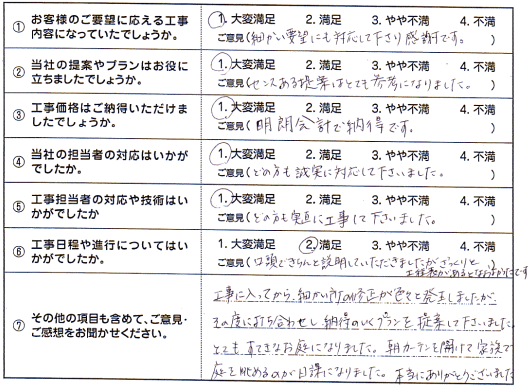 ① お客様のご要望に応える工事内容になっていたでしょうか。
1. 大変満足 2. 満足 3. やや不満 4. 不満
ご意見(細かい要望にも対応して下さり感謝です。)
② 当社の提案やプランはお役に立ちましたでしょうか。
1. 大変満足 2. 満足 3. やや不満 4. 不満
ご意見(センスある提案はとても参考になりました。)
③ 工事価格はご納得いただけましたでしょうか。
1. 大変満足 2. 満足 3. やや不満 4. 不満
ご意見(明朗会計で納得です。)
④ 当社の担当者の対応はいかがでしたか
1. 大変満足 2. 満足 3. やや不満 4. 不満
ご意見(どの方も誠実に対応して下さいました。)
⑤ 工事担当者の対応や技術はいかがでしたか
1. 大変満足 2. 満足 3. やや不満 4. 不満
ご意見(どの方も実直に工事して下さいました。)
⑥ 工事日程や進行についてはいかがでしたか。
1. 大変満足 2. 満足 3. やや不満 4. 不満
ご意見(口頭できちんと説明していただきましたがざっくりと
工程表があるとなおよかったです)
⑦ その他の項目も含めて、ご意見・ご感想をお聞かせください。
工事に入ってから、細かい修正が色々と発生しましたが、
その度に打ち合わせし納得のいくプランを提案して下さいました。
とてもすてきなお庭になりました。朝カーテンを開けて家族で
庭を眺めるのが日課になりました。本当にありがとうございました